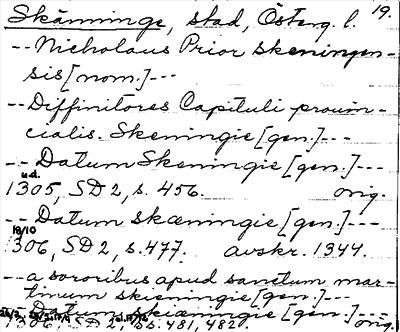 Skänninge, stad, Österg. l. 19.
-- Nicholaus Prior skeningen-
sis [nom.] ---
-- Diffinitores Capituli prouin-
cialis. Skeningie [gen.] ---
-- Datum Skeningie [gen.] ---
u.d.
1305, SD 2, s. 456. orig.
-- Datum skæningie [gen.] ---
18/10
306, SD 2, s. 477. avskr. 1344.
-- a sororibus apud sanctum mar-
tinum skieningie [gen.] ---
-- Datum skiæningie [gen.] ---
1306. SD 2, ss. 481, 482. orig.